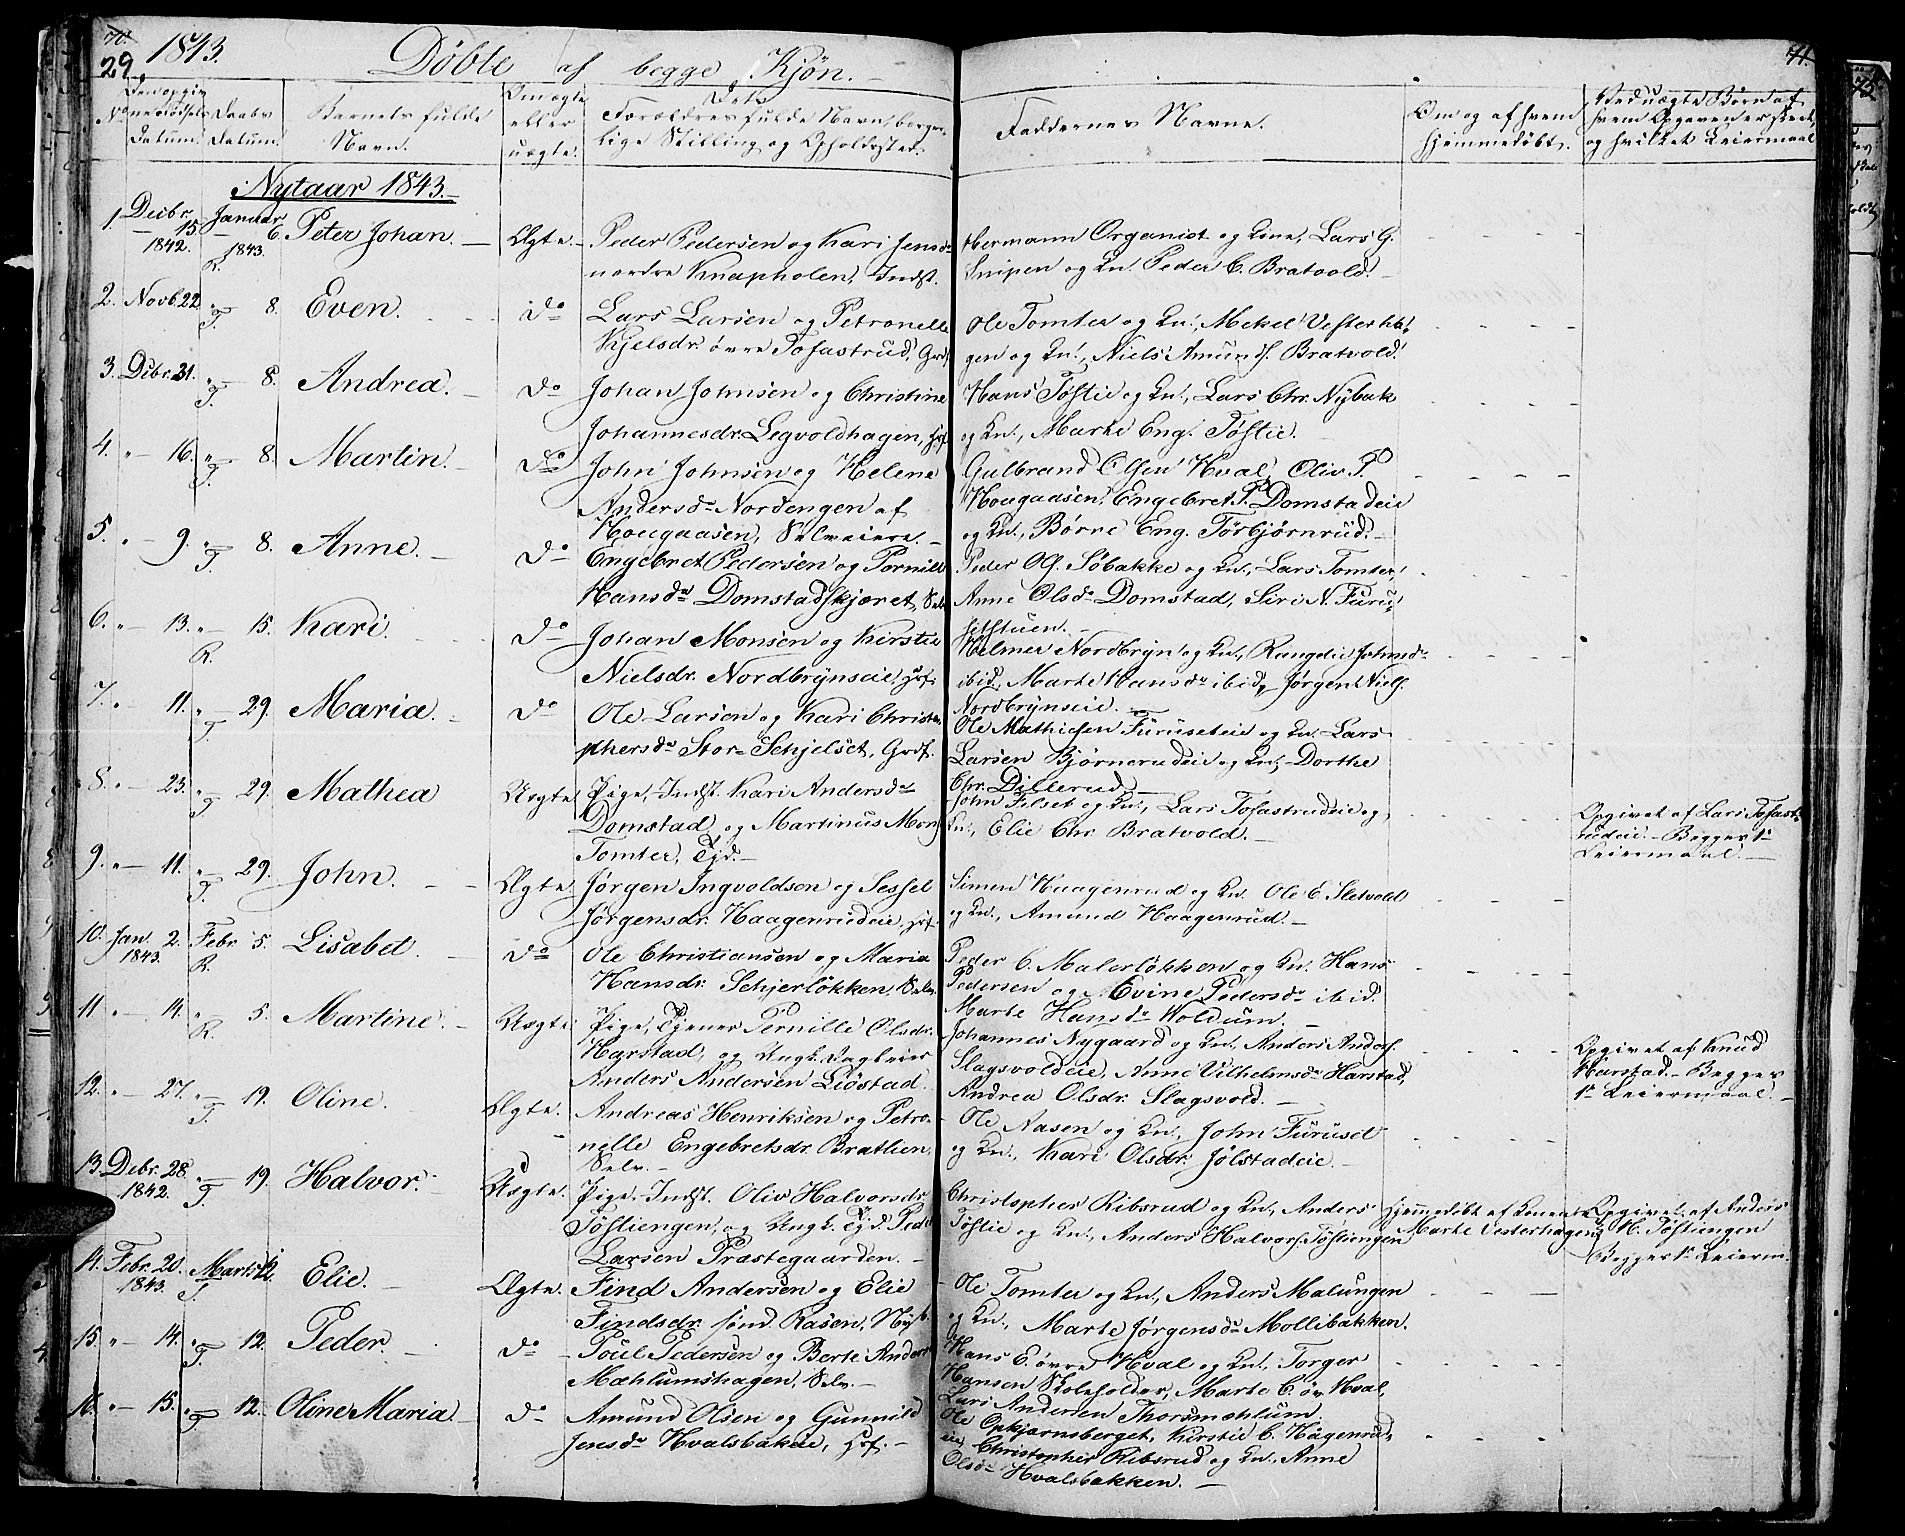 29 1843. Døbte af begge Kjøn.
No Den opgivne Fødsels Datum. Daabs Datum. Barnets fulde Navn. Om ægte eller uægte. Forældres fulde Navn, borgerlige Stilling og Opholdssted. Faddernes Navne. Om og af hvem hjemmedøbt. Ved uægte Børn af hvem Opgaven er skeet og hvilket Leiermaal
Nytaar 1843.
1. Decbr. 15 1842. Januar 6. 1843. R. Peter Johan. Ægte. Peder Pedersen og Kari Jensdr
nordre Knapholen, Indst.
Hermann Organist og Kone, Lars G.
Snipen og Kn. Peder C. Bratvold.
2. Novb. 22 " 8. T. Even. do Lars Larsen og Petronelle
Kjelsdr. øvre Tofastrud, Grdf.
Ole Tomter og Kn., Mekel Vesterha-
gen og Kn., Niels Amunds. Bratvold.
3. Dcbr. 31. " 8. T. Andrea. do Johan Johnsen og Christine
Johannesdr. Segvoldhagen, Hsf.
Hans Tøftie og Kn., Lars Chr. Nybak
og Kn., Marthe Eng. Tøftie.
4. " 16. " 8. T. Martin. do John Johnsen og Helene
Andersdr Nordengen af
Hougaasen, Selveiere.
Gulbrand Olsen Hval, Oliv P.
Hougaasen, Engebret P. Domstadeie
og Kn., Børne Eng. Torbjørnrud.
5. " 9. " 8. T. Anne. do Engebret Pedersen og Pernille
Hansdr Domstadskjæret, Selv
Peder Ols. Søbakke og Kn., Lars Tomter,
Anne Olsdr Domstad, Siri N. Furu-
setstuen.
6. " 13. " 15. R. Kari. do Johan Monsen og Kirstie
Nielsdr. Nordbrynseie, Hsf.
Helmer Nordbryn og Kn., Rangdie Johnsdr
ibid, Marte Hansdr ibid, Jørgen Niels.
Nordbrynseie.
7. " 11. " 29. T. Maria. do Ole Larsen og Kari Christo-
phersdr Stor-Schjelset, Grdf.
Ole Mathiesen Furuseteie og Kn. Lars
Larsen Bjørnerudeie og Kn, Dorthe
Chr. Dillerud.
8. " 23. " 29. T. Mathea Uægte Pige, Indst. Kari Andersdr
Domstad og Martinus Mons
Tomter, Tjd.
John Filset og Kn., Lars Tofastrudeie og
Kn., Elie Chr. Bratvold.
Opgivet af Lars Tofast-
rudeie. Begges 1ste
Leiermaal.
9. " 11. " 29. T. John. Ægte Jørgen Ingvoldsen og Sessel
Jørgensdr. Haagenrudeie, Hsf.
Simen Haagenrud og Kn. Ole E. Sletvold
og Kn., Amund Haagenrud.
10. Jan. 2. 1843. Febr. 5. R. Lisabet. do Ole Christiansen og Maria
Hansdr. Schjerløkken. Selv.
Peder C. Malerløkken og Kn. Hans
Pedersen og Evine Pedersdr ibid.
Marte Hansdr Voldum.
11 " 14. " 5. R. Martine. Uægte Pige, Tjener Pernille Olsdr.
Harstad, og Ungk. Dagleier
Anders Andersen Liøstad.
Johannes Nygaard og Kn., Anders Anders.
Slagsvoldeie, Anne Vilhelmsdr Harstad,
Andrea Olsdr. Slagsvold.
Opgivet af Knud
Harstad. Begges
1ste Leiermaal.
12. " 27. " 19. T. Oline. Ægte. Andreas Henriksen og Petro-
nelle Engebretsdr. Brathen,
Selv.
Ole Aasen og Kn., John Furuset
og Kn., Kari Olsdr. Jølstadeie.
13. Dcbr. 28. 1842. " 19. T. Halvor. Uægte. Pige, Indst. Oliv Halvorsdr.
Tøftiengen, og Ungk. Tjd. Peder
Larsen Præstegaarden.
Christopher Ribsrud og Kn., Anders
Tøftie og Kn., Anders Halvors. Tøftiengen
Hjemmedøbt af Konen
Marte Vesterhagen
Opgivet af Anders
H. Tøftiengen
Begges 1ste Leierm.
14. Febr. 20. 1843. Marts 12. T. Elie. Ægte. Find Andersen og Elie
Findsdr. sønd. Kasen, Nyb.
Ole Tomter og Kn., Anders Malungen
og Kn., Marte Jørgensdr Mollibakken.
15. " 14. " 12. T. Peder. do Poul Pedersen og Berte Anders
Mæhlumshagen, Selv.
Hans E. øvre Hval og Kn., Torger
Hansen Skoleholder, Marte C. øv. Hval,
Lars Andersen Thorsmæhlum.
16. " 15. " 12. T. Oline Maria do Amund Olsen og Gunnild
Jensdr Hvalsbakeie, Hsf.
Ole Opkjørnsberget, Kirstie C. Hagenrud-
eie, Christopher Ribsrud og Kn., Anne
Olsdr Hvalsbakken.